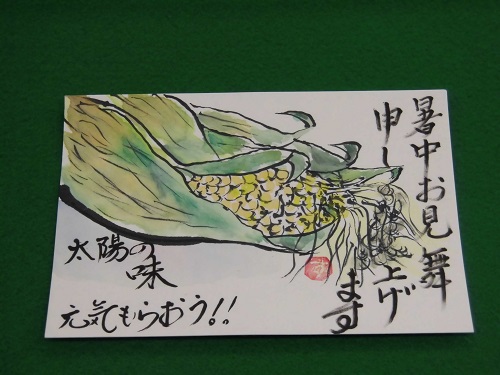 暑中お見舞
申し上げ
ます
太陽の
味
元気もらおう!!